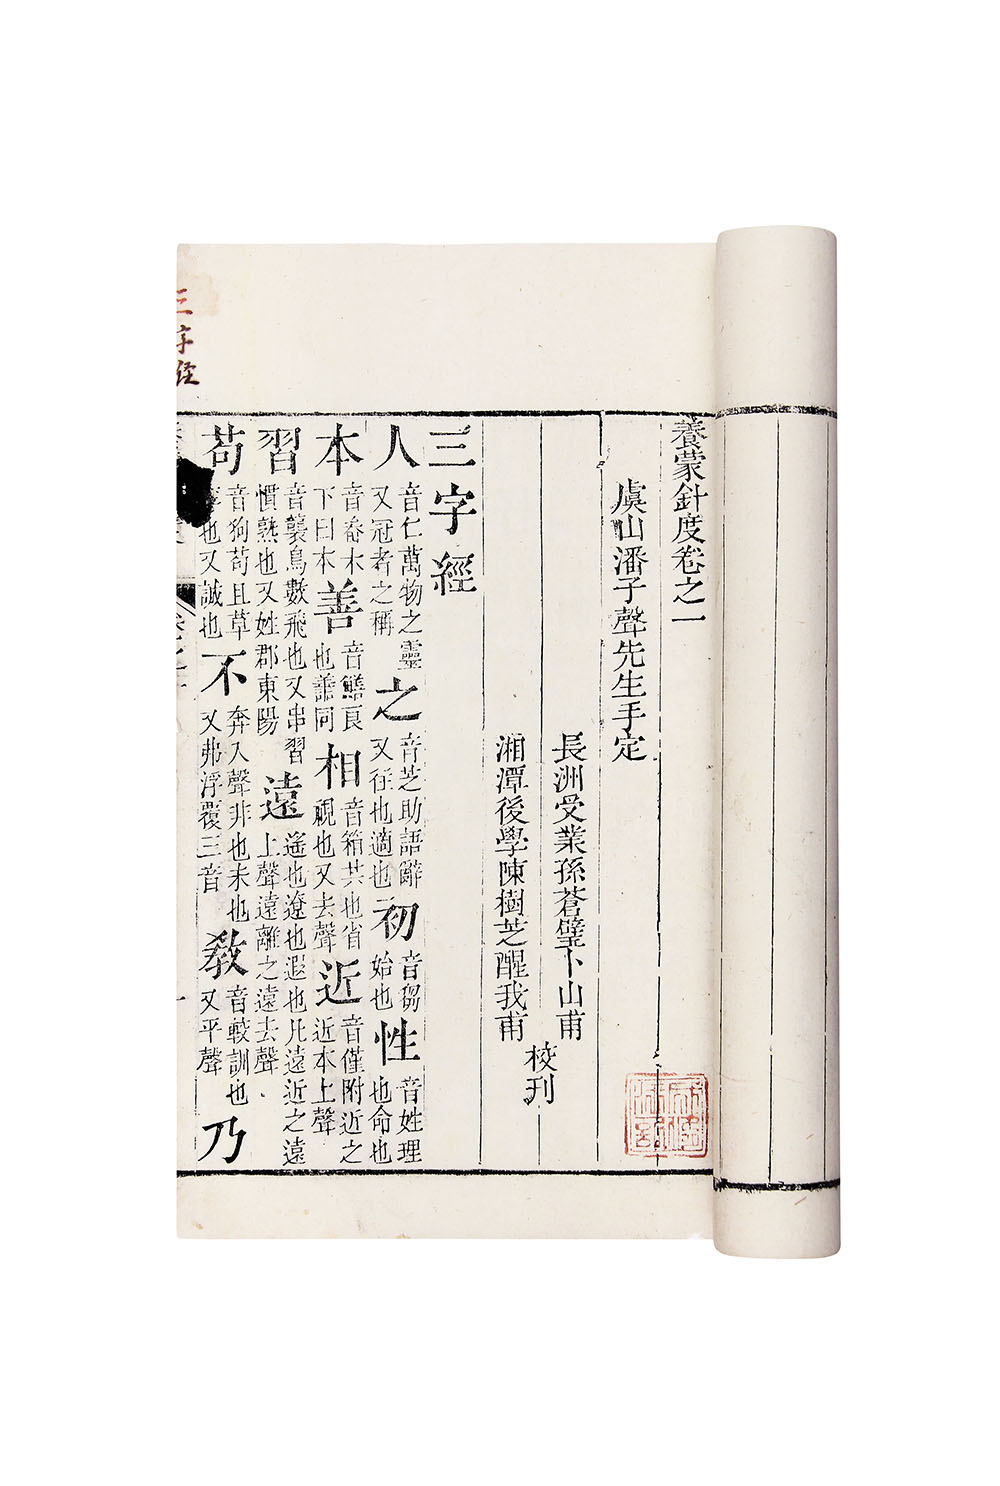 養蒙針度卷之一
虞山潘子聲先生手定
長洲受業孫蒼璧卜山甫
湘潭後學陳樹芝醒我甫
校刊
三字經
人音仁萬物之靈又冠者之稱之音芝助語辭又往也適也初音芻始也性音姓理也命也
本音畚木下曰本善音鱔良也譱同相音箱共也省視也又去聲近音僅附近之近本上聲
習音襲鳥數飛也又串習慣熟也又姓郡東陽遠遙也遼也遐也凡遠近之遠上聲遠離之遠去聲
苟音狗苟且草率也又誠也不奔入聲非也未也又弗浮覆三音教音較訓也又平聲乃
三字經